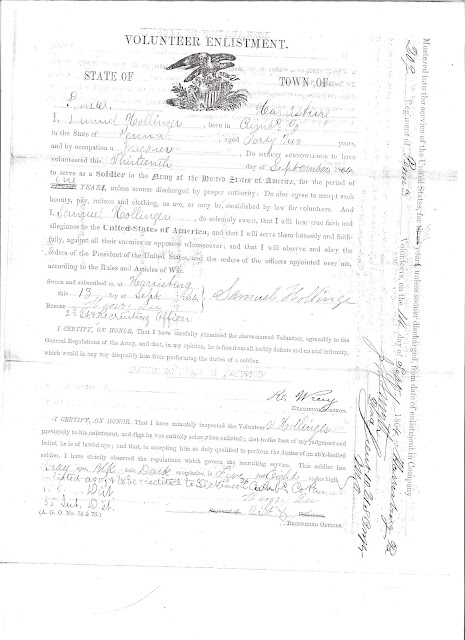 VOLUNTEER ENLISTMENT.
STATE OF TOWN OF
Penna. Harrisburg
I, Samuel Hollinger, born in Cumb. Co
in the State of Penna, aged Forty Two years,
and by occupation a DO HEREBY ACKNOWLEDGE to have
volunteered this Thirteenth day of September 1864,
to serve as a Soldier in the Army of the United States of America, for the period of
YEARS, unless sooner discharged by proper authority: Do also agree to accept such
bounty, pay, rations and clothing, as are, or may be, established by law for volunteers. And
I, Samuel Hollinger, do solemnly swear, that I will bear true faith and
allegiance to the United States of America, and that I will serve them honestly and faith-
fully, against all their enemies or opposers whomsoever; and that I will observe and obey the
orders of the President of the United States, and the orders of the officers appointed over me,
according to the Rules and Articles of War.
Sworn and subscribed to, at Harrisburg
this 13 day of Sept 1864
BEFORE
Recruiting Officer
Samuel Hollinger
I CERTIFY, ON HONOR, That I have carefully examined the above-named Volunteer, agreeably to the
General Regulations of the Army, and that, in my opinion, he is free from all bodily defects and mental infirmity,
which would in any way disqualify him from performing the duties of a soldier.
EXAMINING SURGEON.
I CERTIFY, ON HONOR, That I have minutely inspected the Volunteer S. Hollinger
previously to his enlistment, and that he was entirely sober when enlisted; that, to the best of my judgment and
belief, he is of lawful age; and that, in accepting him as duly qualified to perform the duties of an able-bodied
soldier, I have strictly observed the regulations which govern the recruiting service. This soldier has
Gray eyes, Blk hair, Dark complexion, is Five feet Eight inches high.
to be credited to Cumb. Co
Dist
RECRUITING OFFICER.
(A. G. O. No. 74 & 76.)
Mustered into the service of the United States, for years, unless sooner discharged, from date of enlistment in Company
Regiment of Penna Volunteers, on the day of Sept, 1864, at Harrisburg Pa